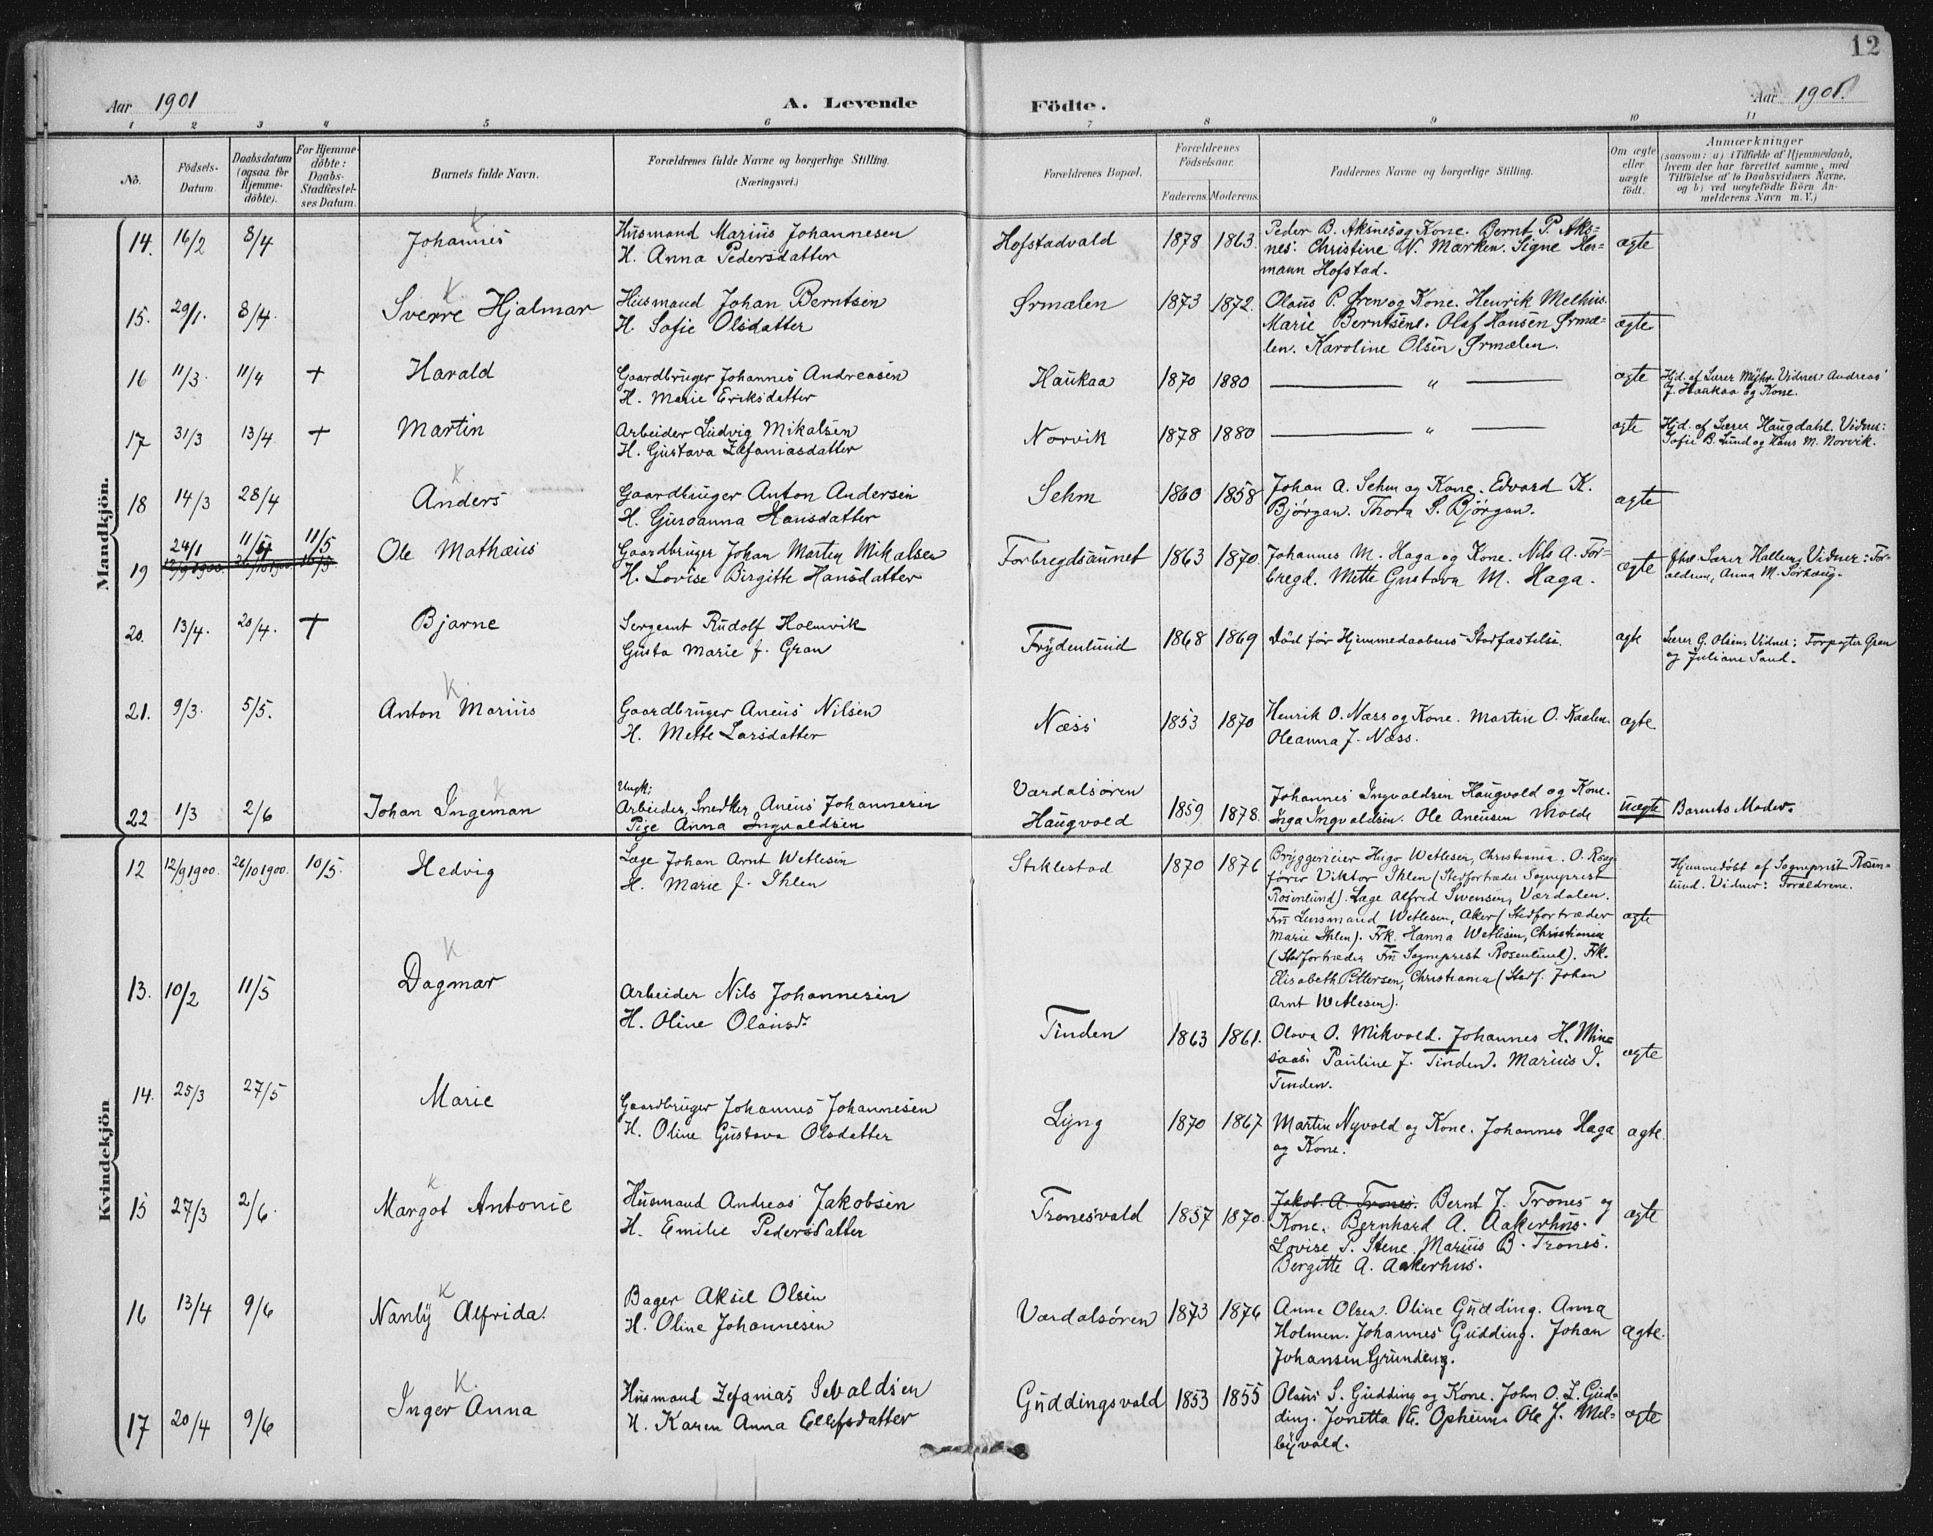 12
Aar 1901 A. Levende Födte. Aar 1901.
1 2 3 4 5 6 7 8 9 10 11
No.
Födsels-Datum.
Daabsdatum (ogsaa for Hjemme-döbte).
For Hjemme-döbte: Daabs-Stadfæstel-ses Datum.
Barnets fulde Navn.
Forældrenes fulde Navne og borgerlige Stilling. (Næringsvei.)
Forældrenes Bopæl.
Forældrenes Födselsaar.
Faderens. Moderens.
Faddernes Navne og borgerlige Stilling.
Om ægte eller uægte födt.
Anmærkninger
(saasom: a) i Tilfælde af Hjemmedaab, hvem der har forrettet samme, med Tilföielse af to Daabsvidners Navne, og b) ved uægtefödte Börn Anmelderens Navn m. V.)
Mandkjön.
14. 16/2 8/4 Johannes K
Husmand Marius Johannesen
H. Anna Pedersdatter
Hofstadvald 1878 1863.
Peder B. Aksnes og Kone. Bernt P. Aks=
nes. Christine N. Marken. Signe Her=
mann Hofstad.
ægte
15. 29/1. 8/4. Sverre Hjalmar K
Husmand Johan Berntsen
H. Sofie Olsdatter
Ørmælen 1873 1872.
Olaus P. Øren og Kone. Henrik Melhus.
Marie Berntsen. Olaf Hansen Ørmæ=
len. Karoline Olsen Ørmælen.
ægte
16 11/3. 11/4 + Harald
Gaardbruger Johannes Andreasen
H. Marie Eriksdatter
Haukaa 1870 1880 — " —
ægte
Hjd. af Lærer Myhr. Vidner Andreas
J. Haukaa og Kone.
17 31/3 13/4. + Martin
Arbeider Ludvig Mikalsen
H. Gustava Zefaniasdatter
Norvik 1878 1880 — " —
ægte
Hjd. af Lærer Haugdahl. Vidner:
Sofie B. Lund og Hans M. Norvik.
18 14/3 28/4 Anders K
Gaardbruger Anton Andersen
H. Gusoanna Hansdatter
Sehm 1860 1858
Johan A. Sehm og Kone. Edvard K.
Bjørgan. Thora S. Bjørgan.
ægte
19 24/1 11/5 11/5
12/9 1900. 26/10 1900. 10/5
Ole Mathæus
Gaardbruger Johan Martin Mikalsen
H. Lovise Birgitte Hansdatter
Forbregdsaunet 1863 1870.
Johannes M. Haga og Kone. Nils A. For=
bregd. Mette Gustava M. Haga.
ægte
Lærer Hallem, Vidner: For=
ældrene, Anna M.
20. 13/4. 20/4. + Bjarne
Sergeant Rudolf Holmvik
Gusta Marie f. Gran
Frydenlund 1868 1869
Død før Hjemmedaabens Stadfæstelse.
ægte
Lærer G. Olsen, Vidner: Forpagter Gran
og Juliane Sand.
21. 9/3. 5/5. Anton Marius K.
Gaardbruger Aneus Nilsen
H. Mette Larsdatter
Næss 1853 1870
Henrik O. Næss og Kone. Martin O. Kaalen.
Oleanna J. Næss.
ægte
22 1/3 2/6 Johan Ingeman K
Ungk:
Arbeider, Snedker Aneus Johannesen
Pige Anna Ingvaldsen
Værdalsøren
Haugvold 1859 1878.
Johannes Ingvaldsen Haugvold og Kone.
Inga Ingvaldsen. Ole Aneusen Molde
uægte
Barnets Moder.
Kvindekjön
12 12/9 1900. 26/10 1900. 10/5. Hedvig
Læge Johan Arnt Wetlesen
H. Marie f. Ihlen
Stiklestad 1870 1876
Bryggerieier Hugo Wetlesen, Christiania. O. Rets-
fører Viktor Ihlen (Stedfortræder Sogneprest
Rosenlund). Læge Alfred Swensen, Værdalen.
Fru Lensmand Wetlesen, Aker (Stedfortræder
Marie Ihlen). Frk. Hanna Wetlesen, Christiania
(Stedfortræder Fru Sogneprest Rosenlund). Frk.
Elisabeth Pettersen, Christiania (Stedf. Johan
Arnt Wetlesen).
ægte
Hjemmedøbt af Sogneprest Rosen=
lund. Vidner: Forældrene.
13. 10/2 11/5 Dagmar K
Arbeider Nils Johannesen
H. Oline Olausdr
Tinden 1863 1861.
Olava O. Mikvold. Johannes H. Min=
saas. Pauline J. Tinden. Marius I.
Tinden.
ægte
14. 25/3 27/5 Marie
Gaardbruger Johannes Johannesen
H. Oline Gustava Olsdatter
Lyng 1870 1867
Martin Nyvold og Kone. Johannes Haga
og Kone.
ægte.
15 27/3 2/6. Margot Antonie K
Husmand Andreas Jakobsen
H. Emilie Pedersdatter
Tronesvald 1857 1870.
Jakob A. Trones. Bernt J. Trones og
Kone. Bernhard A. Aakerhus.
Lovise P. Stene. Marius B. Trones.
Bergitte A. Aakerhus.
ægte
16 13/4 9/6 Nanly Alfrida. K
Bager Aksel Olsen
H. Oline Johannesen
Værdalsøren 1873 1876
Anne Olsen. Oline Gudding. Anna
Holmen. Johannes Gudding. Johan
Johansen Grunden.
ægte.
17 20/4 9/6 Inger Anna K.
Husmand Zefanias Sevaldsen
H. Karen Anna Ellefsdatter
Guddingsvald 1853 1855
Olaus S. Gudding og Kone. John O. L. Gud=
ding. Jonetta E. Opheim. Ole J. Mel=
byvald.
ægte